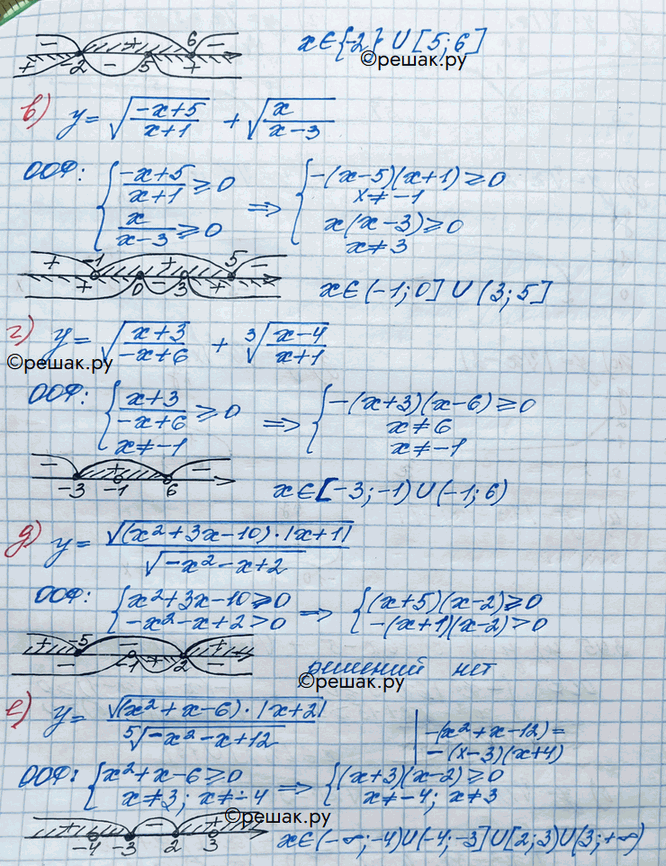 - + 6 -
+ -2 - 5 +
x∈{-2}∪[5;6]
©решак.ру
в) y = √((-x+5)/(x+1)) + √(x/(x-3))
ООФ: { (-x+5)/(x+1) ≥ 0 ⇒ { -(x-5)(x+1) ≥ 0
x ≠ -1
x/(x-3) ≥ 0 x(x-3) ≥ 0
x ≠ 3
+ -1 + 5
+ 0 - 3 +
x∈(-1;0]∪(3;5]
г) y = √((x+3)/(-x+6)) + ∛((x-4)/(x+1))
©решак.ру
ООФ: { (x+3)/(-x+6) ≥ 0 ⇒ { -(x+3)(x-6) ≥ 0
x ≠ 6
x ≠ -1 x ≠ -1
- + -
-3 -1 6
x∈[-3;-1)∪(-1;6)
д) y = √((x²+3x-10)·|x+1|) / √(-x²-x+2)
ООФ: { x²+3x-10 ≥ 0 ⇒ { (x+5)(x-2) ≥ 0
-x²-x+2 > 0 -(x+1)(x-2) > 0
+ -5 - +
- -1 + 2 -
решений нет
©решак.ру
е) y = √((x²+x-6)·|x+2|) / ⁵√(-x²-x+12)
-(x²+x-12) =
-(x-3)(x+4)
ООФ: { x²+x-6 ≥ 0 ⇒ { (x+3)(x-2) ≥ 0
x ≠ 3; x ≠ -4 x ≠ -4; x ≠ 3
+ - +
-4 -3 2 3
x∈(-∞;-4)∪(-4;-3]∪[2;3)∪(3;+∞)